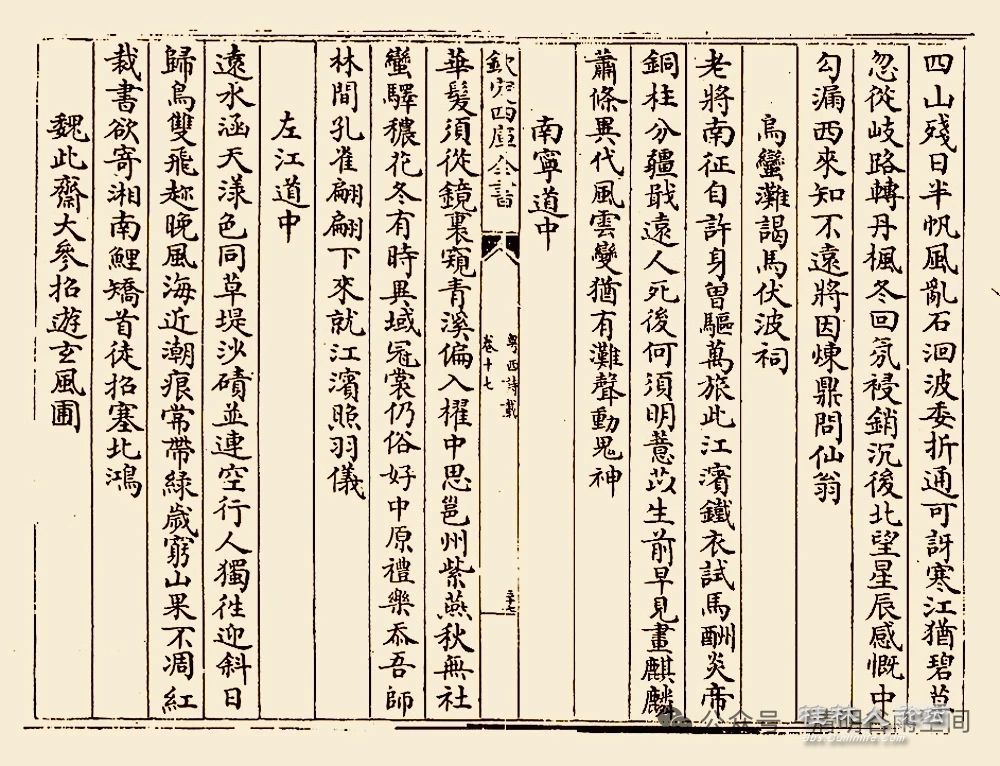 四山殘日半帆風亂石洄波委折通可訝寒江猶碧草
忽從岐路轉丹楓冬回氛祲銷沉後北望星辰感慨中
勾漏西來知不遠將因煉鼎問仙翁
烏蠻灘謁馬伏波祠
老將南征自許身曽驅萬旅此江濱鐵衣試馬酬炎帝
銅柱分疆戢遠人死後何須明薏苡生前早見畫麒麟
蕭條異代風雲變猶有灘聲動鬼神
南寧道中
欽定四庫全書
粵西詩載
卷十七
華髮須從鏡裏窺青溪偏入櫂中思邕州紫燕秋無社
蠻驛穠花冬有時異域冠裳仍俗好中原禮樂忝吾師
林間孔雀翩翩下來就江濱照羽儀
左江道中
遠水涵天漾色同草堤沙磧並連空行人獨徃迎斜日
歸鳥雙飛趂晚風海近潮痕常帶緑歲窮山果不凋紅
裁書欲寄湘南鯉矯首徒招塞北鴻
魏此齋大參招遊玄風圃
公众号
桂林人论坛